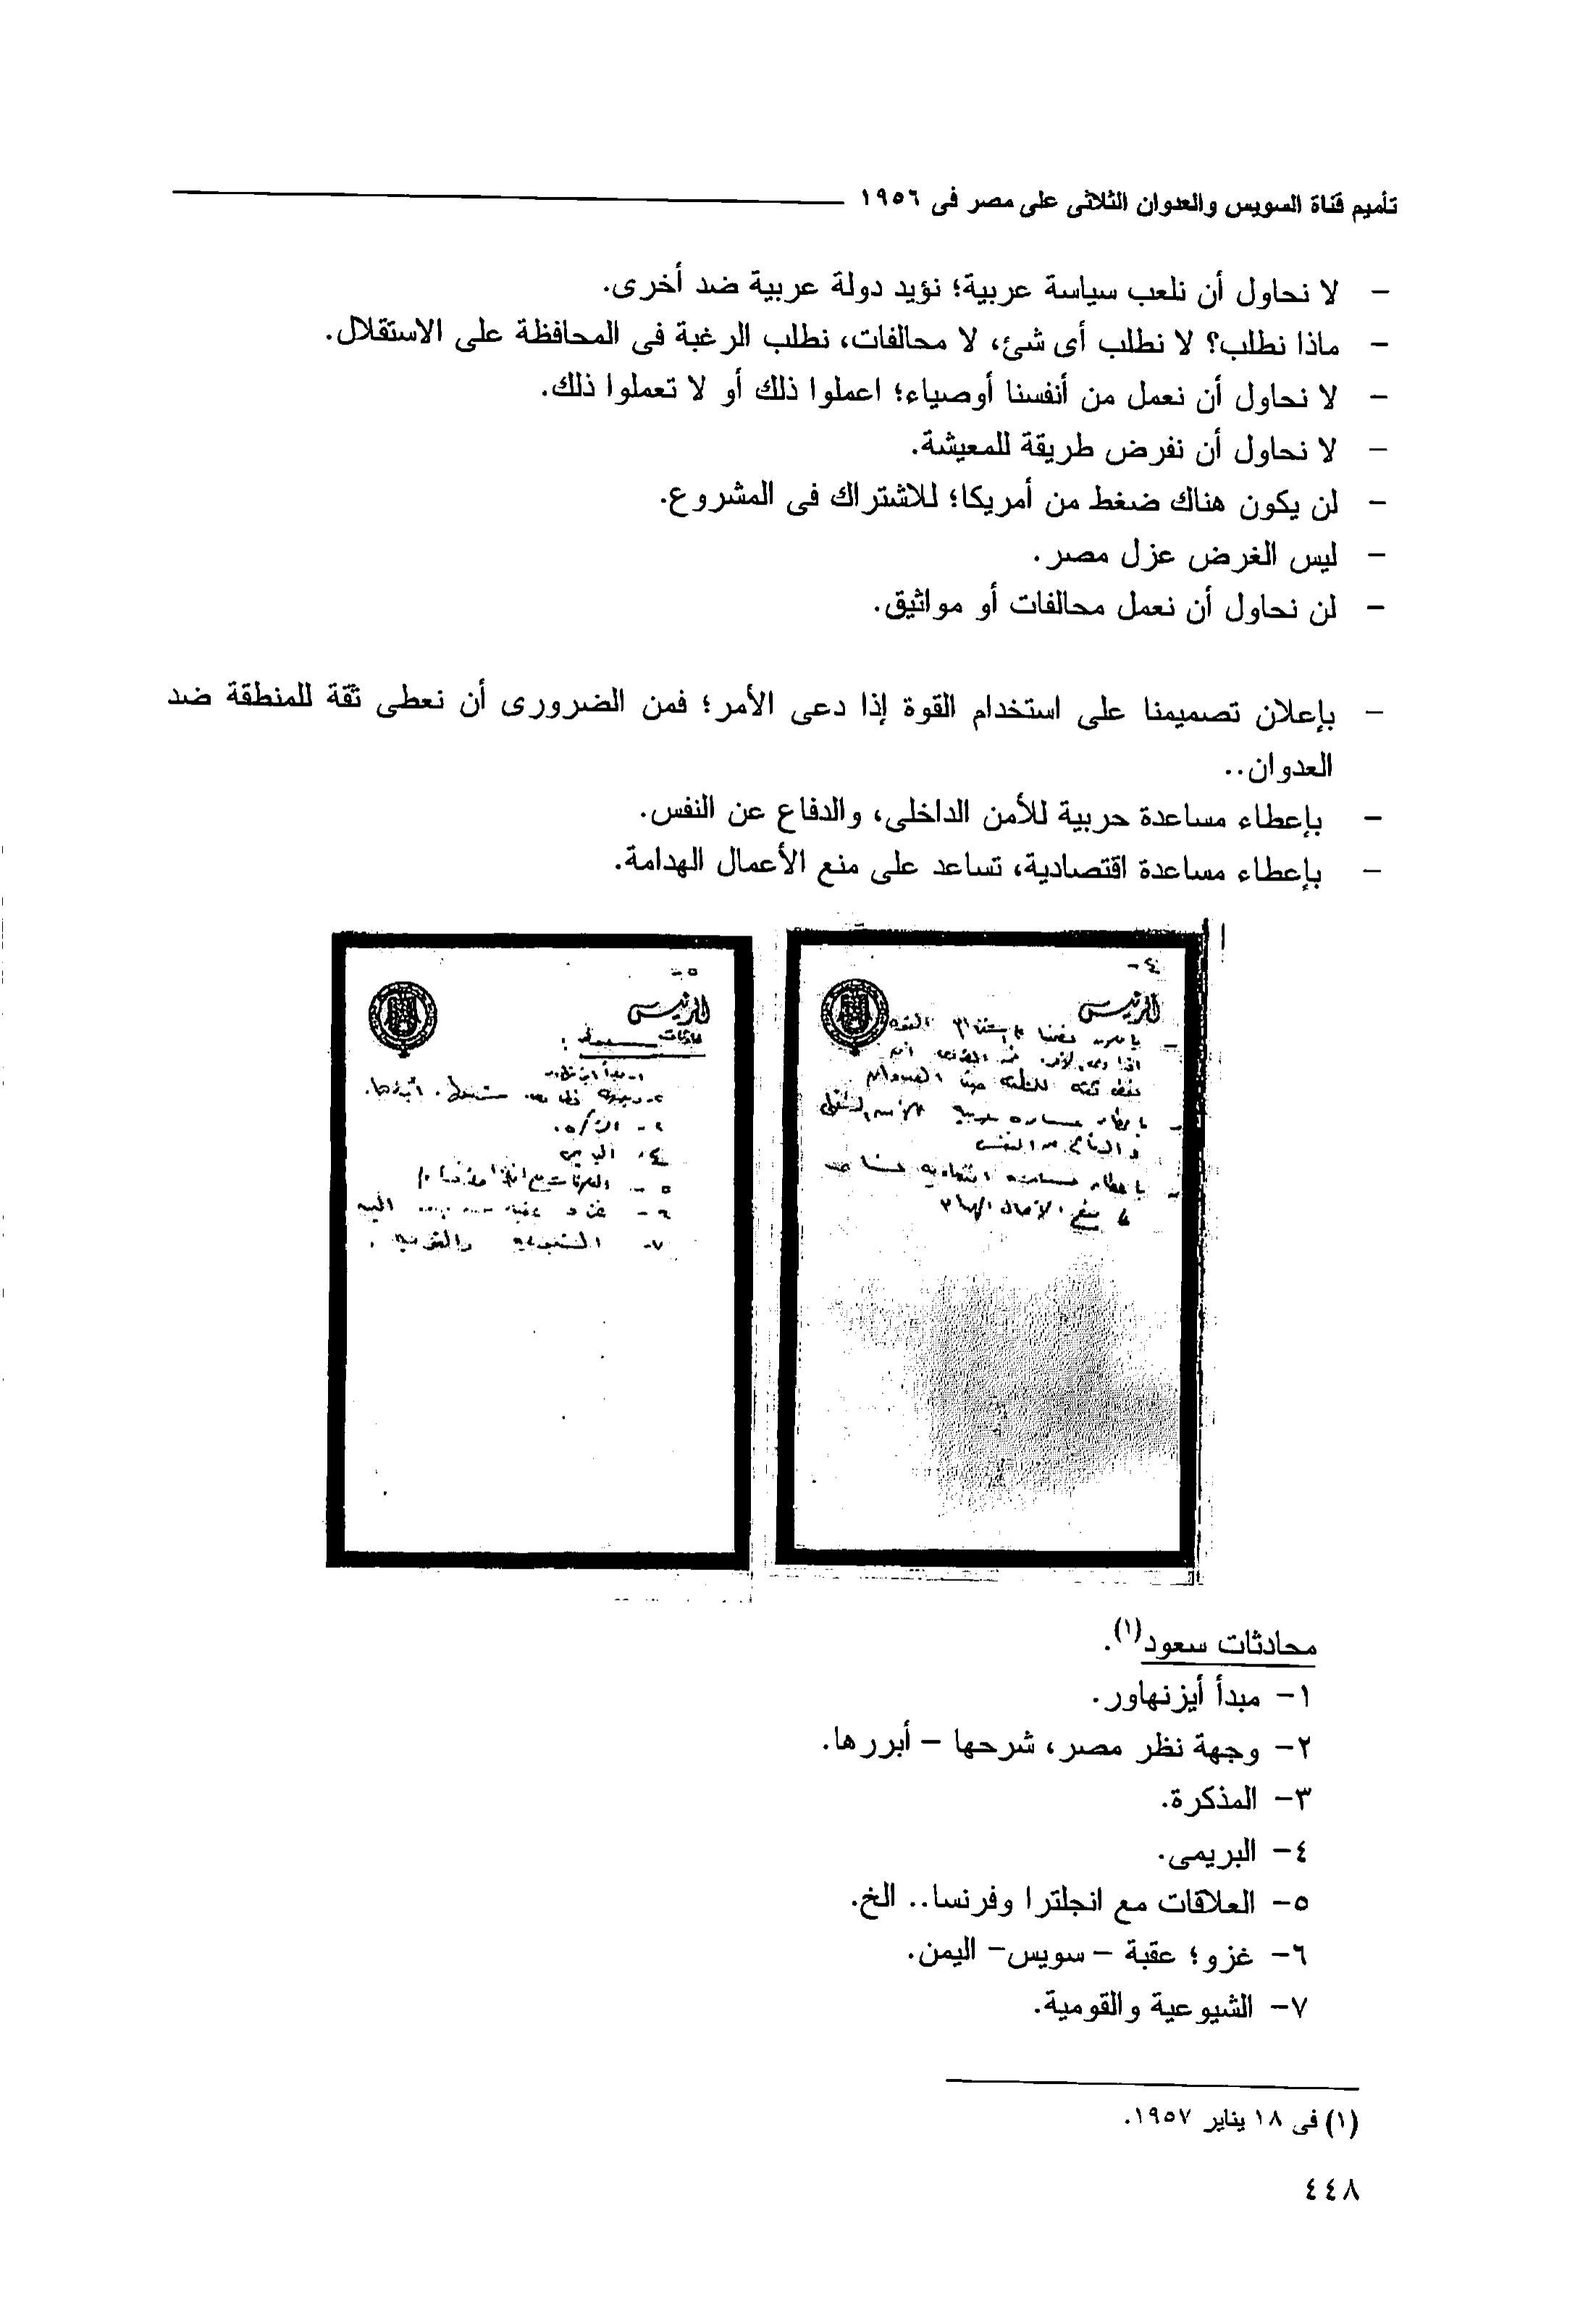 تأميم قناة السويس والعدوان الثلاثى على مصر فى ١٩٥٦
- لا نحاول أن نلعب سياسة عربية؛ نؤيد دولة عربية ضد أخرى.
- ماذا نطلب؟ لا نطلب أى شئ، لا محالفات، نطلب الرغبة فى المحافظة على الاستقلال.
- لا نحاول أن نعمل من أنفسنا أوصياء؛ اعملوا ذلك أو لا تعملوا ذلك.
- لا نحاول أن نفرض طريقة للمعيشة.
- لن يكون هناك ضغط من أمريكا؛ للاشتراك فى المشروع.
- ليس الغرض عزل مصر.
- لن نحاول أن نعمل محالفات أو مواثيق.
- بإعلان تصميمنا على استخدام القوة إذا دعى الأمر؛ فمن الضرورى أن نعطى ثقة للمنطقة ضد
العدوان..
- بإعطاء مساعدة حربية للأمن الداخلى، والدفاع عن النفس.
- بإعطاء مساعدة اقتصادية، تساعد على منع الأعمال الهدامة.
٤-
الرئيس
٥-
الرئيس
محادثات سعود(١).
١- مبدأ أيزنهاور.
٢- وجهة نظر مصر، شرحها - أبررها.
٣- المذكرة.
٤- البريمى.
٥- العلاقات مع انجلترا وفرنسا.. الخ.
٦- غزو؛ عقبة - سويس- اليمن.
٧- الشيوعية والقومية.
(١) فى ١٨ يناير ١٩٥٧.
٤٤٨